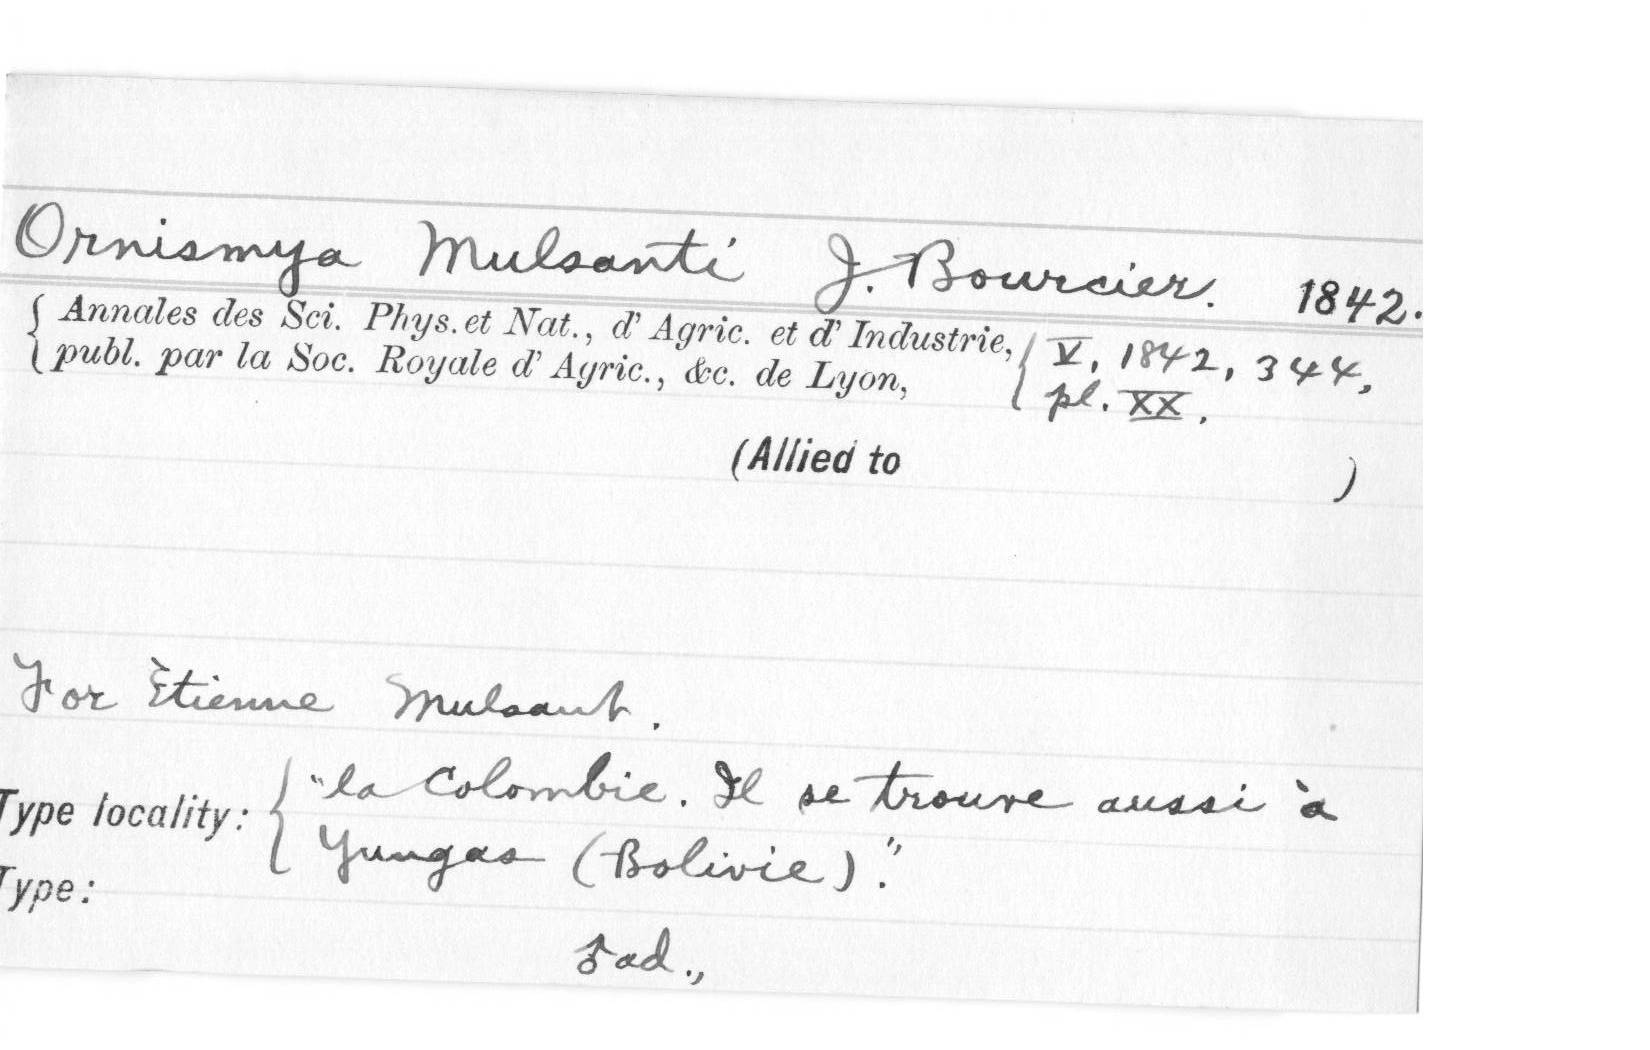 Ornismya Mulsanti J. Bourcier. 1842.
{ Annales des Sci. Phys. et Nat., d' Agric. et d' Industrie, { V, 1842, 344,
publ. par la Soc. Royale d' Agric., &c. de Lyon, pl. XX.
(Allied to )
For Ètienne Mulsant.
Type locality: { "la Colombie. Il se trouve aussi à
Yungas (Bolivie)."
Type:
♂ ad.,